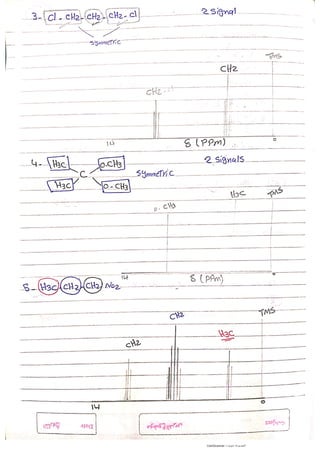 3- Cl - CH2 - CH2 - CH2 - Cl 2 Signal
Symmetric
TMS
CH2
CH2
14 δ (PPm) 0
4- H3C O.CH3 2 Signals
C Symmetric
H3C O-CH3
H3C TMS
O-CH3
14 δ (PPm) 0
5- H3C-CH2-CH2-NO2
CH2 TMS
CH2 H3C
14 0
CamScanner